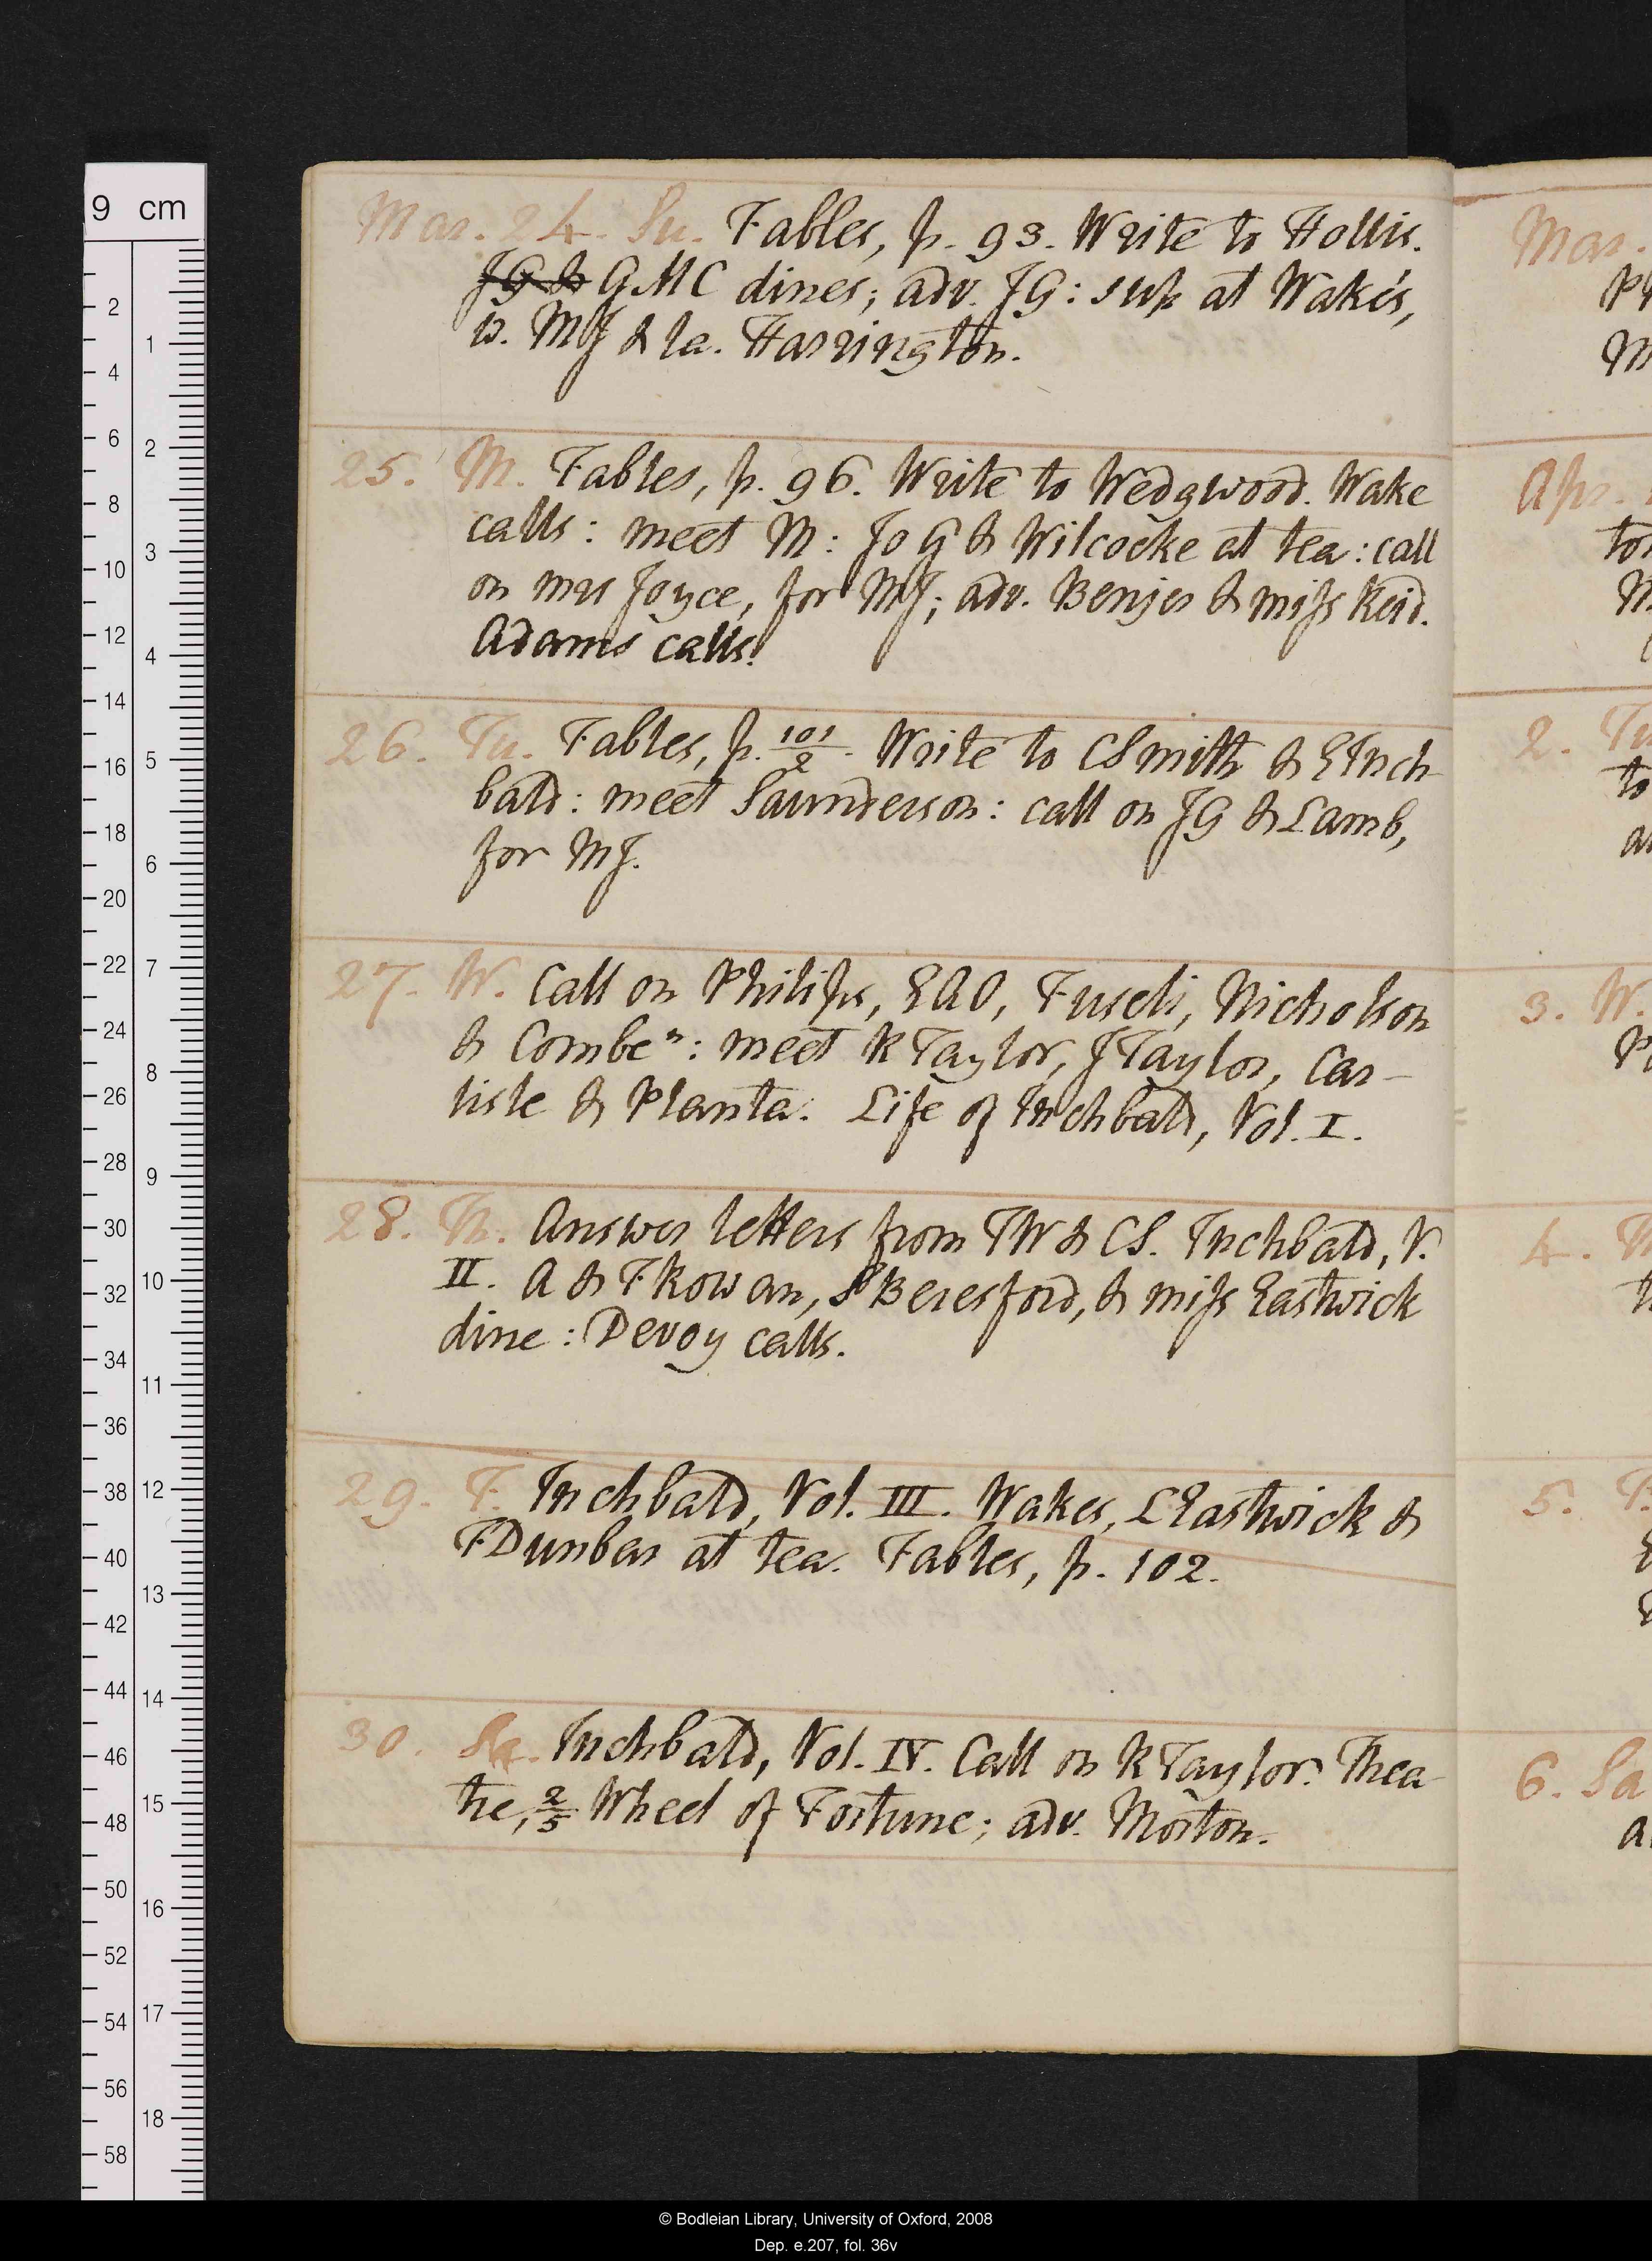 Mar. 24. Su. Fables, p. 93. Write to Hollis.
JG & GMC dines; adv. JG: sup at Wake's,
w. MJ & la. Harrington.
25. M. Fables, p. 96. Write to Wedgwood. Wake
calls: meet M: Jo G & Wilcocke at tea: call
on mrs Joyce, for MJ; adv. Benjer & miss Reid.
Adams calls.
26. Tu. Fables, p. 101/2. Write to CSmith & EInch
bald: meet Saunderson: call on JG & Lamb,
for MJ.
27. W. Call on Philips, EAO, Fuseli, Nicholson
& Combe n: meet RTaylor, JTaylor, Car-
lisle & Planta. Life of Inchbald, Vol. I.
28. Th. Answer letters from TW & CS. Inchbald, V.
II. A & F Rowan, Beresford, & miss Eastwick
dine: Devoy calls.
29. F. Inchbald, Vol. III. Wakes, LEastwick &
FDunbar at tea. Fables, p. 102.
30. Sa. Inchbald, Vol. IV. Call on RTaylor. Thea
tre, 2/5 Wheel of Fortune; adv. Morton.
Mar.
M
Apr.
2. Tu
to
3. W.
4.
5.
6. Sa
9 cm
2 4 6 8 10 12 14 16 18 20 22 24 26 28 30 32 34 36 38 40 42 44 46 48 50 52 54 56 58
1 2 3 4 5 6 7 8 9 10 11 12 13 14 15 16 17 18
© Bodleian Library, University of Oxford, 2008
Dep. e.207, fol. 36v